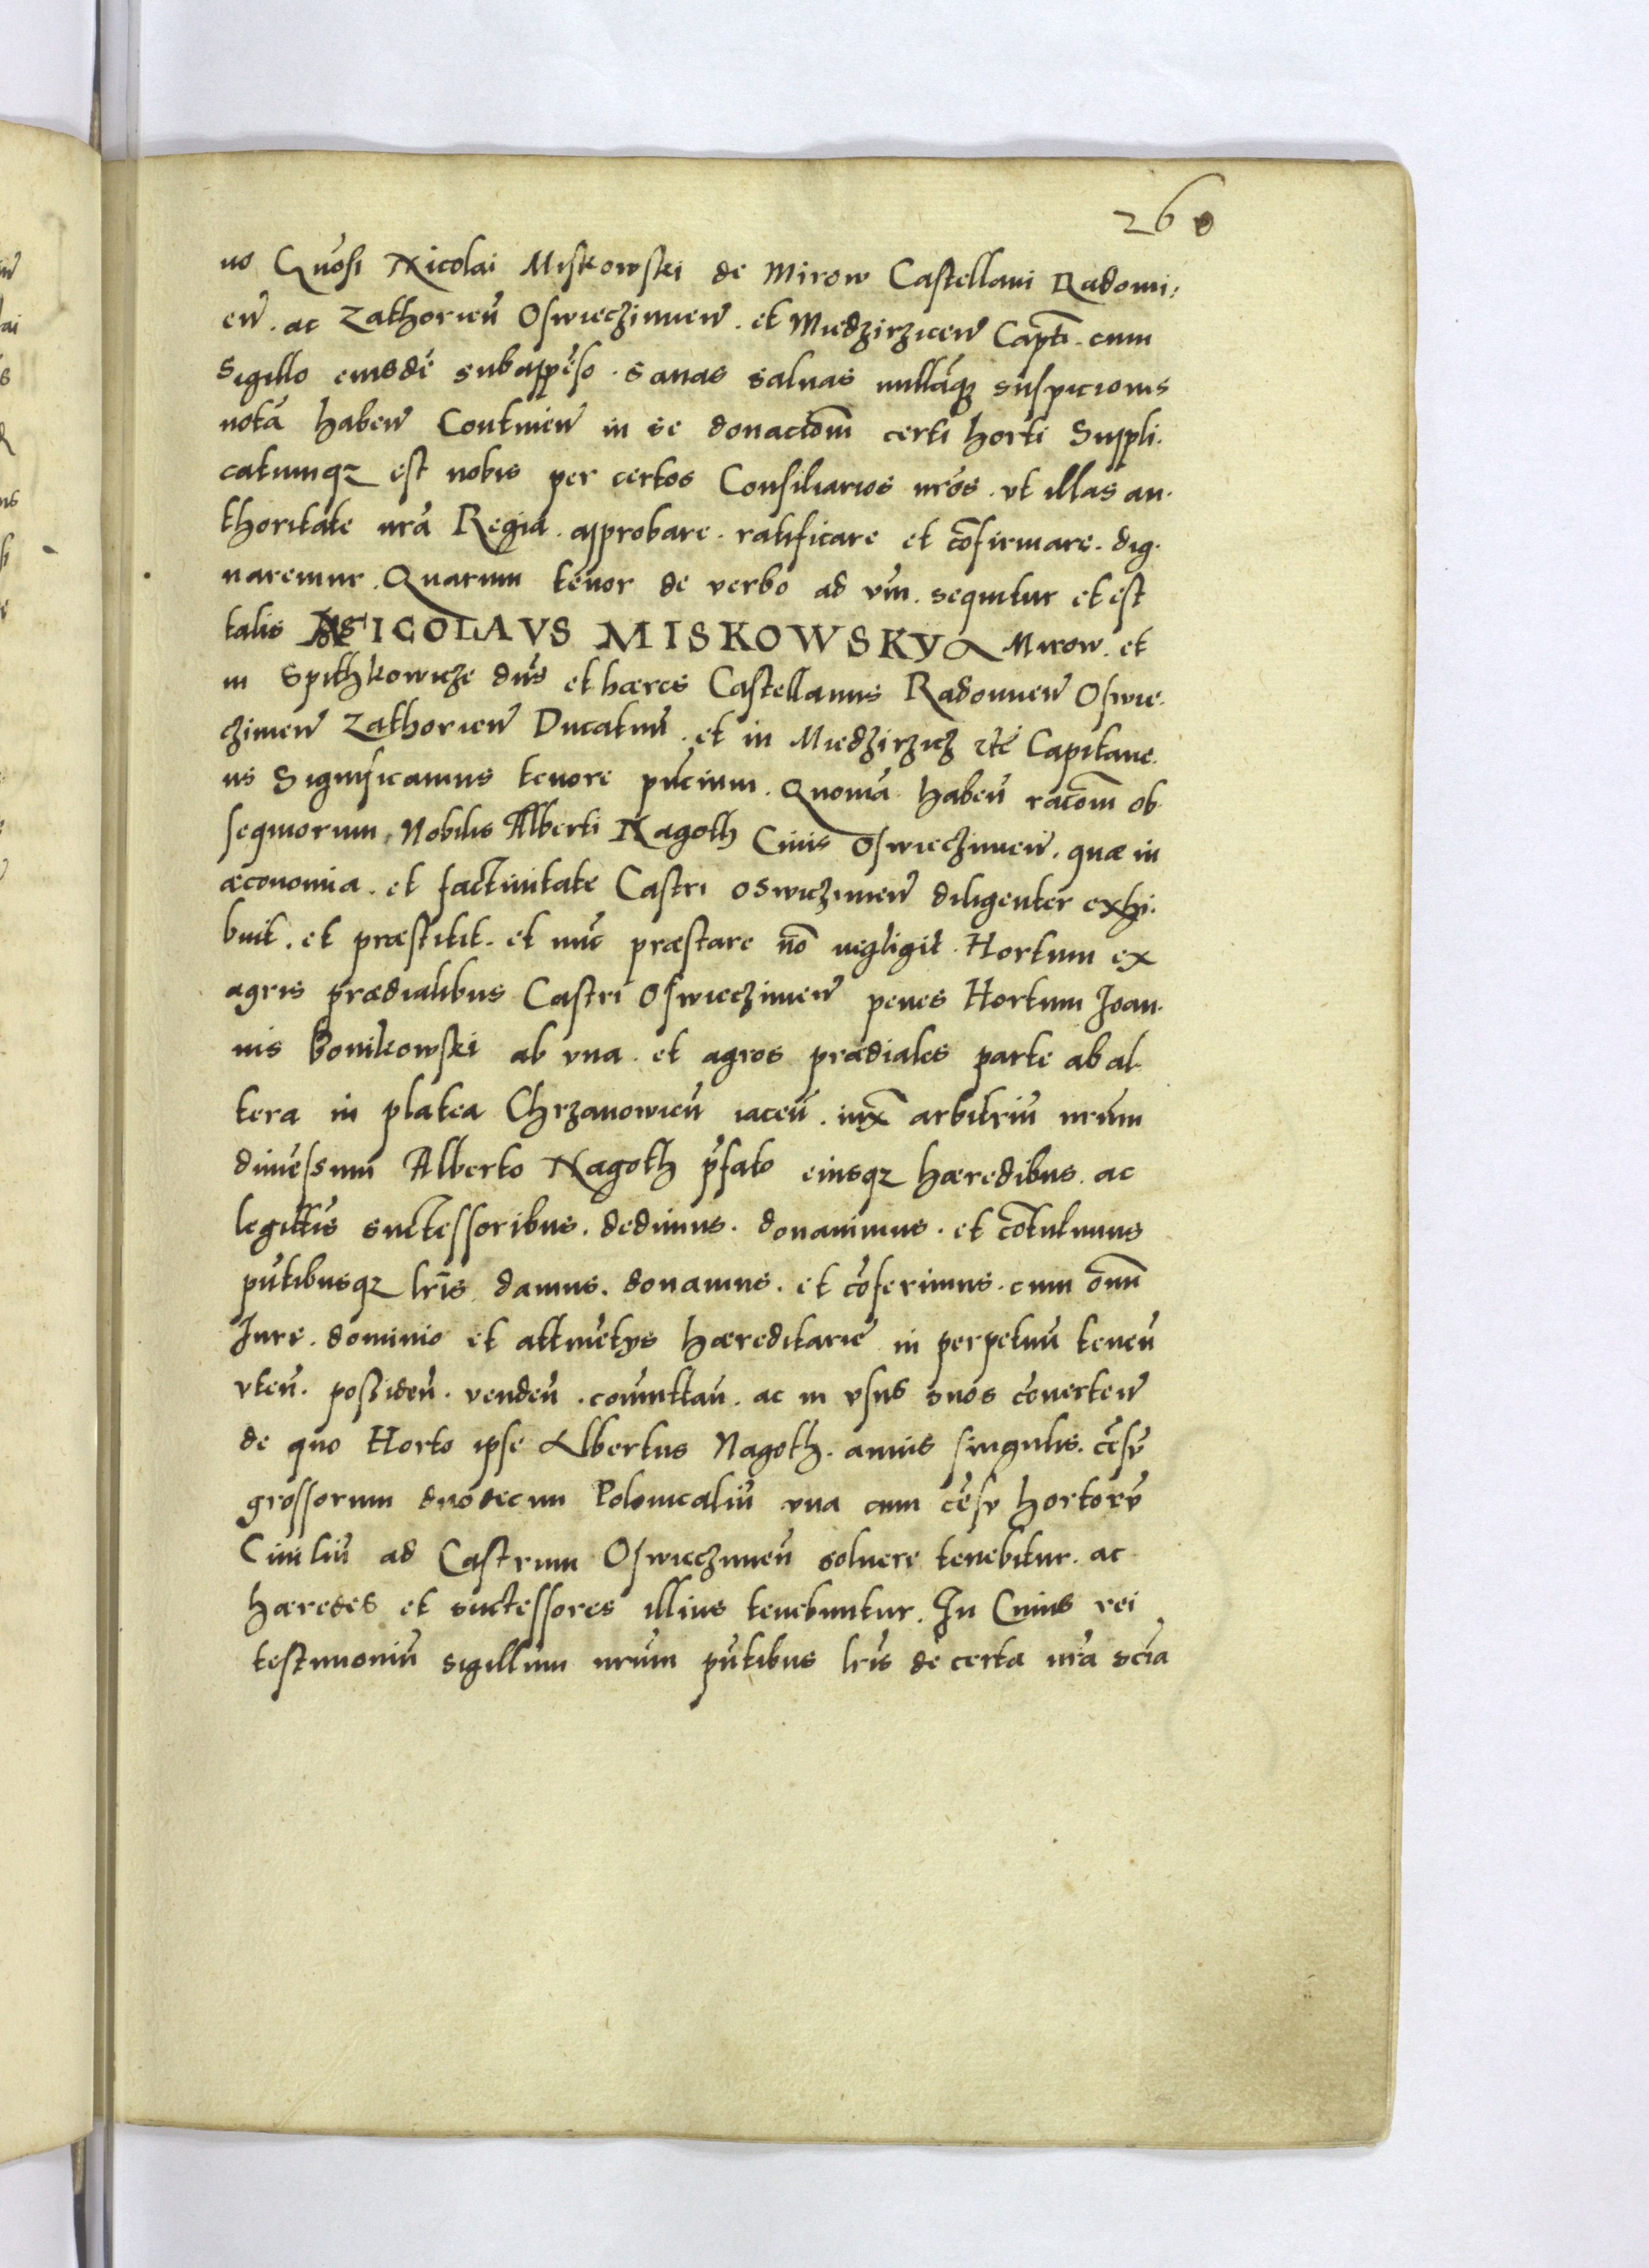 260
no Gnosi Nicolai Miskowski de Mirow Castellani Radomi:
en̄. ac Zathorien̄ Oswieczimen̄. et Miedzirzicen̄ Captī. cum
Sigillo eiusdē subappēso. Sanas saluas nullāq; suspicionis
notā haben̄ Continen̄ in se donaciōm certi horti Suppli.
catumq; est nobis per certos Consiliarios nrōs. vt illas au.
thoritate nrā Regia. approbare. ratificare et cōfirmare. dig.
naremur. Quarum tenor de verbo ad vm̄. sequitur et est
talis NICOLAVS MISKOWSKY a Mirow. et
in Spithkowicze dn̄s et hæres Castellanus Radomien̄ Oswie.
czimen̄ Zathorien̄ Ducatuū. et in Miedzirzicz etc̄ Capitane.
us Significamus tenore pn̄cium. Quoniā haben̄ racōm ob
sequiorum, Nobilis Alberti Nagoth Ciuis Oswieczimen̄. quæ in
æconomia. et factiuitate Castri oswiczimen̄ diligenter exhi.
buit. et præstitit. et nūc præstare nō negligit. Hortum ex
agris prædialibus Castri Oswieczimen̄ penes Hortum Joan.
nis Bonikowski ab vna. et agros prædiales parte ab al
tera in platea Chrzanowicen̄ iacen̄. iuxͭ arbitriū nrūm
dimēssum Alberto Nagoth p̄fato eiusq; hæredibus. ac
legittīs successoribus. dedimus. donauimus. et cōtulimus
pn̄tibusq; lrīs damus. donamus. et cōferimus. cum omn̄i
Jure. dominio et attinētys hæreditariē in perpetuū tenen̄
vten̄. possiden̄. venden̄. comūttan̄. ac in vsus suos cōuerten̄
de quo Horto ipse Albertus Nagoth. annis singulis. cēsū
grossorum duodecim Polonicaliū vna cum cēsu hortorū
Ciuiliū ad Castrum Oswieczimen̄ soluere tenebitur. ac
hæredes et successores illius tenebuntur. In Cuius rei
testimoniū sigillum nrūm pn̄tibus lrīs de certa nrā scīa